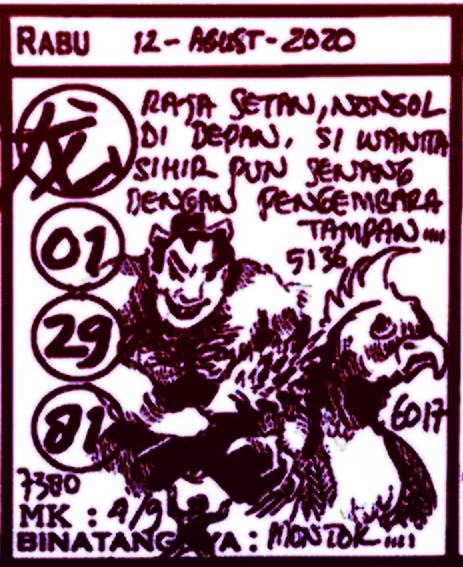 RABU 12-AGUST-2020
龙
RAJA SETAN, NONGOL
DI DEPAN, SI WANITA
SIHIR PUN SENANG
DENGAN PENGEMBARA
TAMPAN....
5136
01
29
81
6017
7380
MK : 4/9
BINATANGNYA : MONTOK....